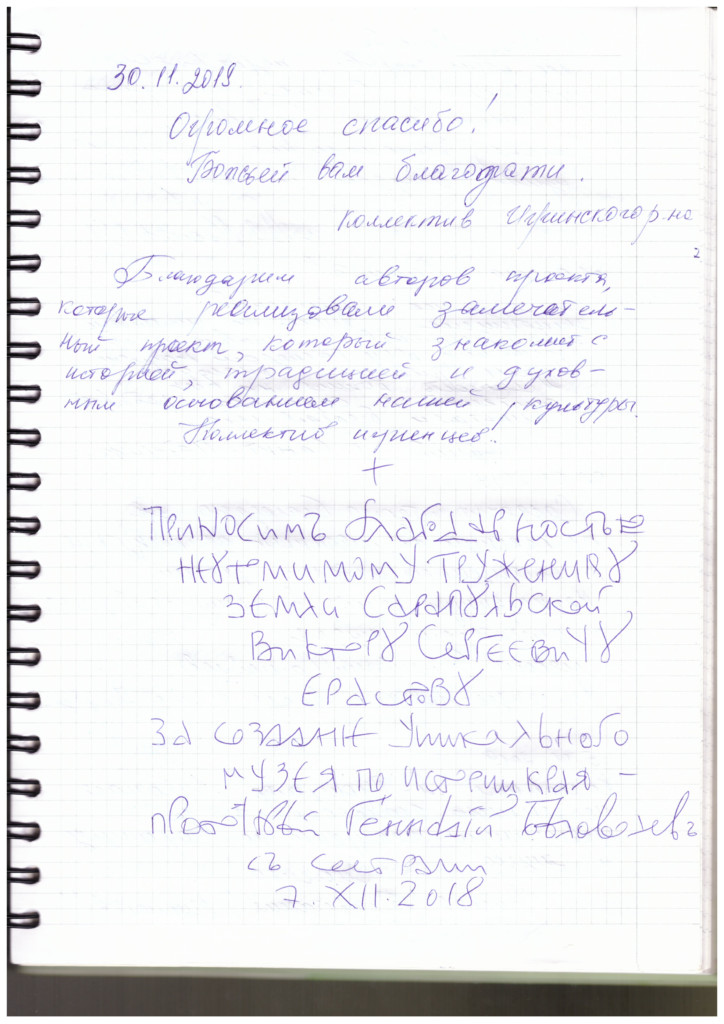 30.11.2019.
Огромное спасибо!
Божьей вам благодати.
Коллектив Игринского р-на
Благодарим авторов проекта,
которые реализовали замечатель-
ный проект, который знакомит с
историей, традицией и духов-
ным основанием нашей культуры.
Коллектив
+
Приносимъ благодарность
неутомимому труженику
земли Сарапульской
Виктору Сергеевичу
Ерастову
за создание уникального
музея по истории края –
протоиерей
съ сестрами
7.XII.2018